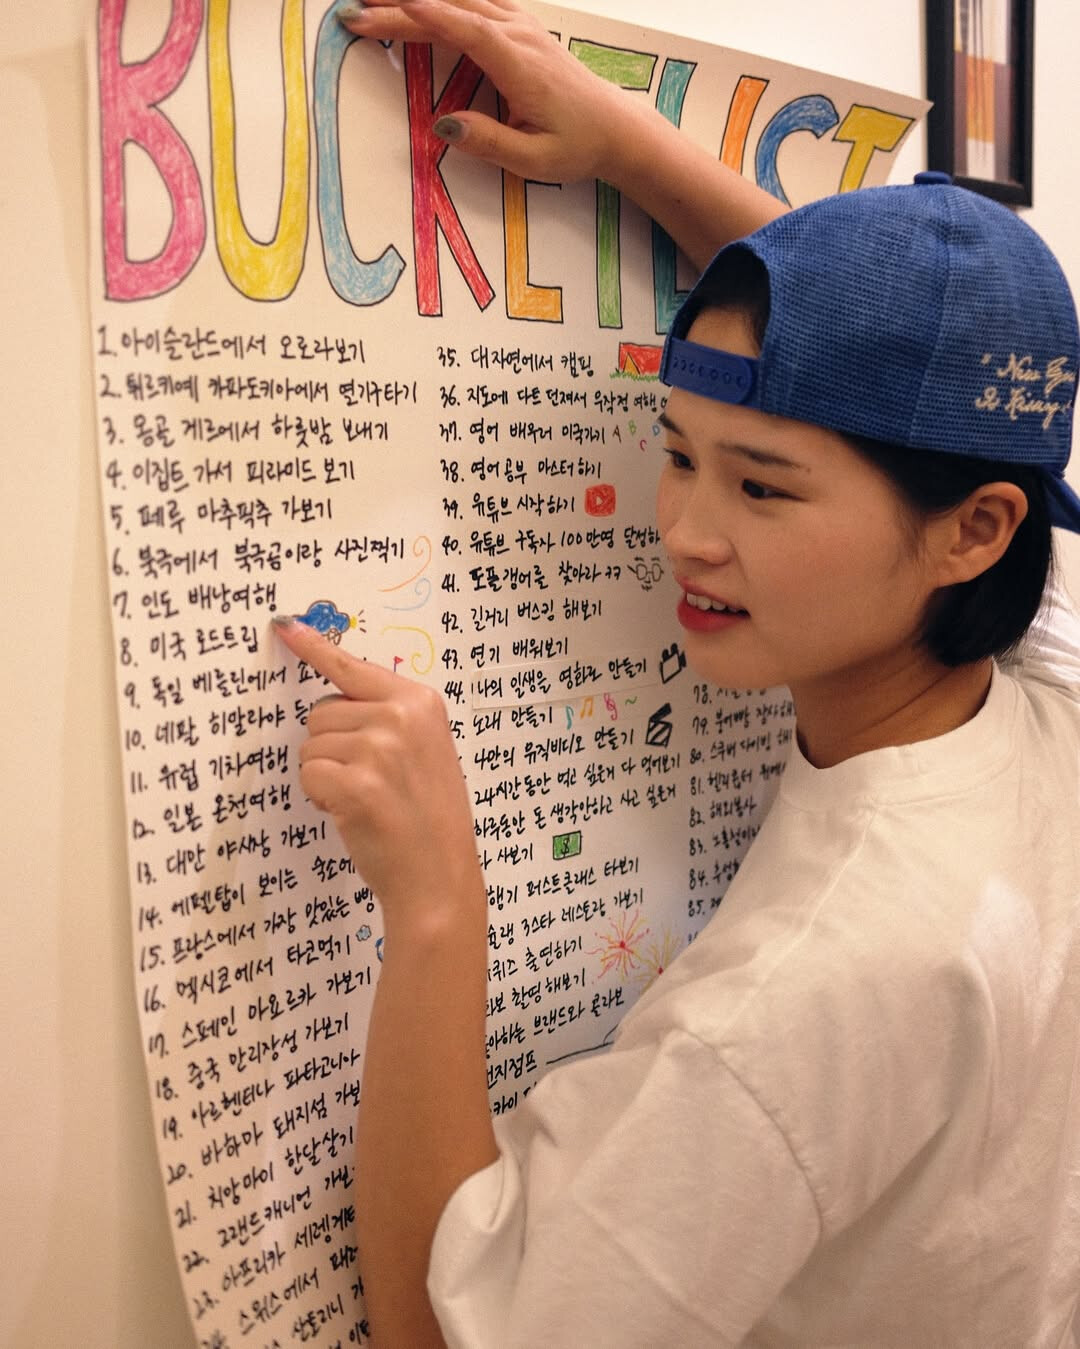 BUCKETLIST
1. 아이슬란드에서 오로라보기
2. 튀르키예 카파도키아에서 열기구타기
3. 몽골 게르에서 하룻밤 보내기
4. 이집트 가서 피라미드 보기
5. 페루 마추픽추 가보기
6. 북극에서 북극곰이랑 사진찍기
7. 인도 배낭여행
8. 미국 로드트립
9. 독일 베를린에서
10. 네팔 히말라야
11. 유럽 기차여행
12. 일본 온천여행
13. 대만 야시장 가보기
14. 에펠탑이 보이는 숙소에
15. 프랑스에서 가장 맛있는 빵
16. 멕시코에서 타코먹기
17. 스페인 마요르카 가보기
18. 중국 만리장성 가보기
19. 아르헨티나 파타고니아
20. 바하마 돼지섬 가보
21. 치앙마이 한달살기
22. 그랜드캐니언 가보
23. 아프리카 세렝게티
스위스에서 패러
산토리니 가
35. 대자연에서 캠핑
36. 지도에 다트 던져서 무작정 여행
37. 영어 배우러 미국가기 A B C
38. 영어공부 마스터하기
39. 유튜브 시작하기
40. 유튜브 구독자 100만명 달성하
41. 도플갱어를 찾아라 ㅋㅋ
42. 길거리 버스킹 해보기
43. 연기 배워보기
44. 나의 일생을 영화로 만들기
5. 노래 만들기
나만의 뮤직비디오 만들기
24시간동안 먹고 싶은거 다 먹어보기
하루동안 돈 생각안하고 사고 싶은거
다 사보기 $
행기 퍼스트클래스 타보기
슐랭 3스타 레스토랑 가보기
퀴즈 출연하기
화보 촬영해보기
좋아하는 브랜드와 콜라보
번지점프
카이
78.
79. 붕어빵 장사해
80. 스쿠버 다이빙 해
81. 헬리콥터
82. 해외봉사
83.
84.
85.